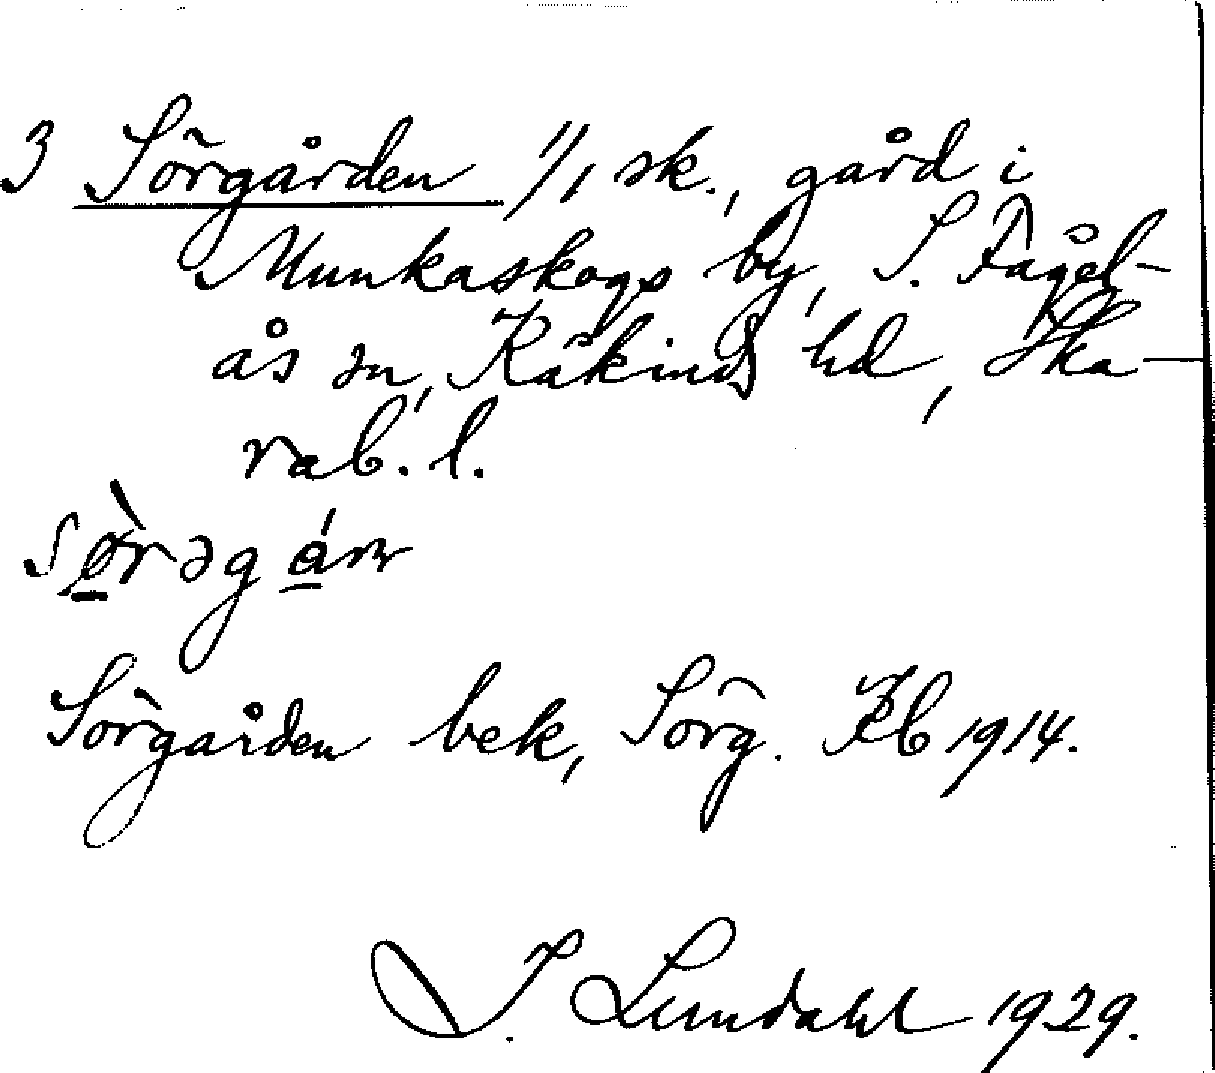 3 Sörgården 1/1 sk., gård i
Munkaskogs by, S. Fågel-
ås sn, Kåkinds hd, Ska-
rab. l.
sø̀rəgá
Sörgården bek, Sörg. Kb 1914.
I. Lundahl 1929.